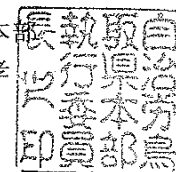 自治労鳥
取県本部
執行委員
長之印
本部